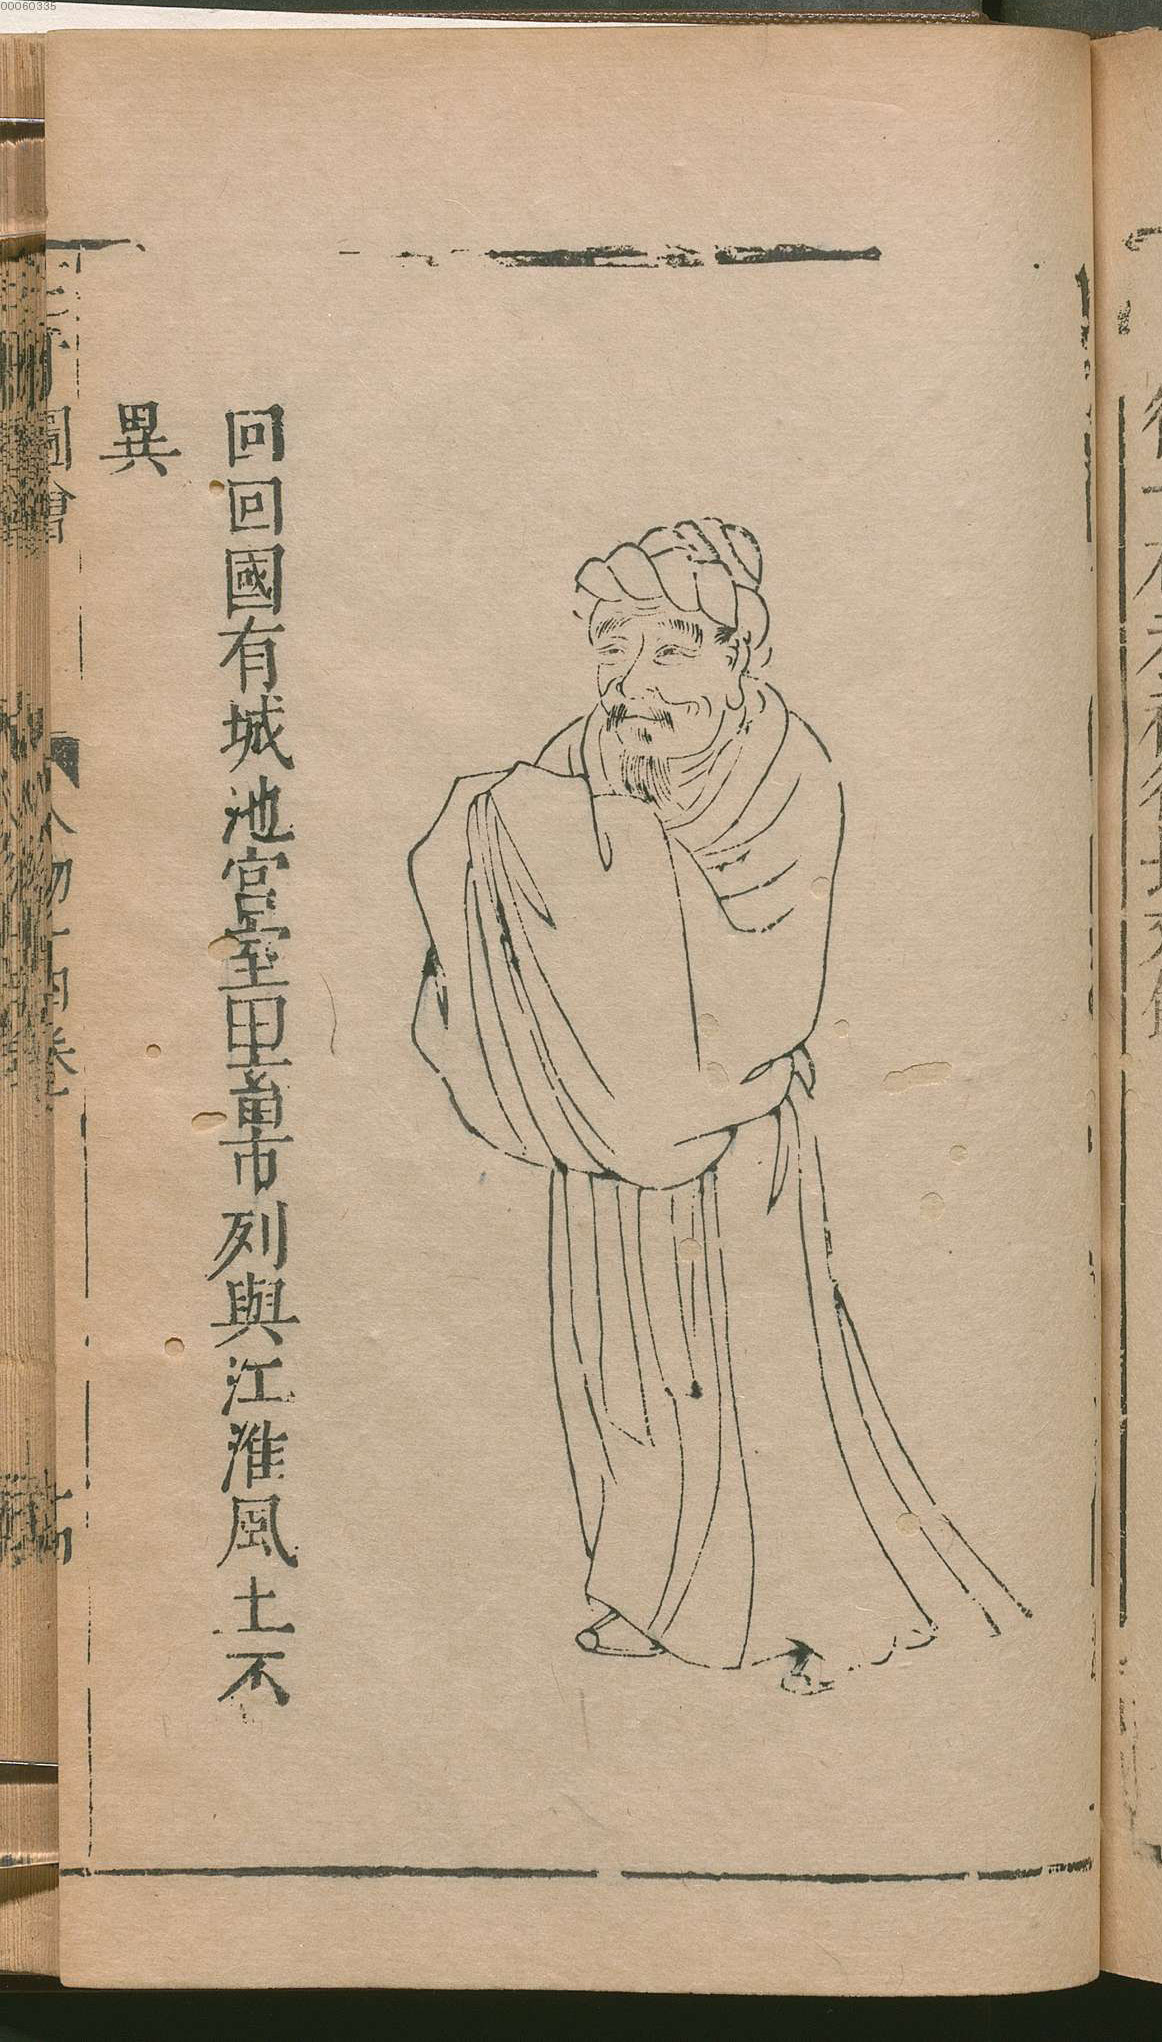 00060335
回回國有城池宮室田園市列與江淮風土不
異
圖會